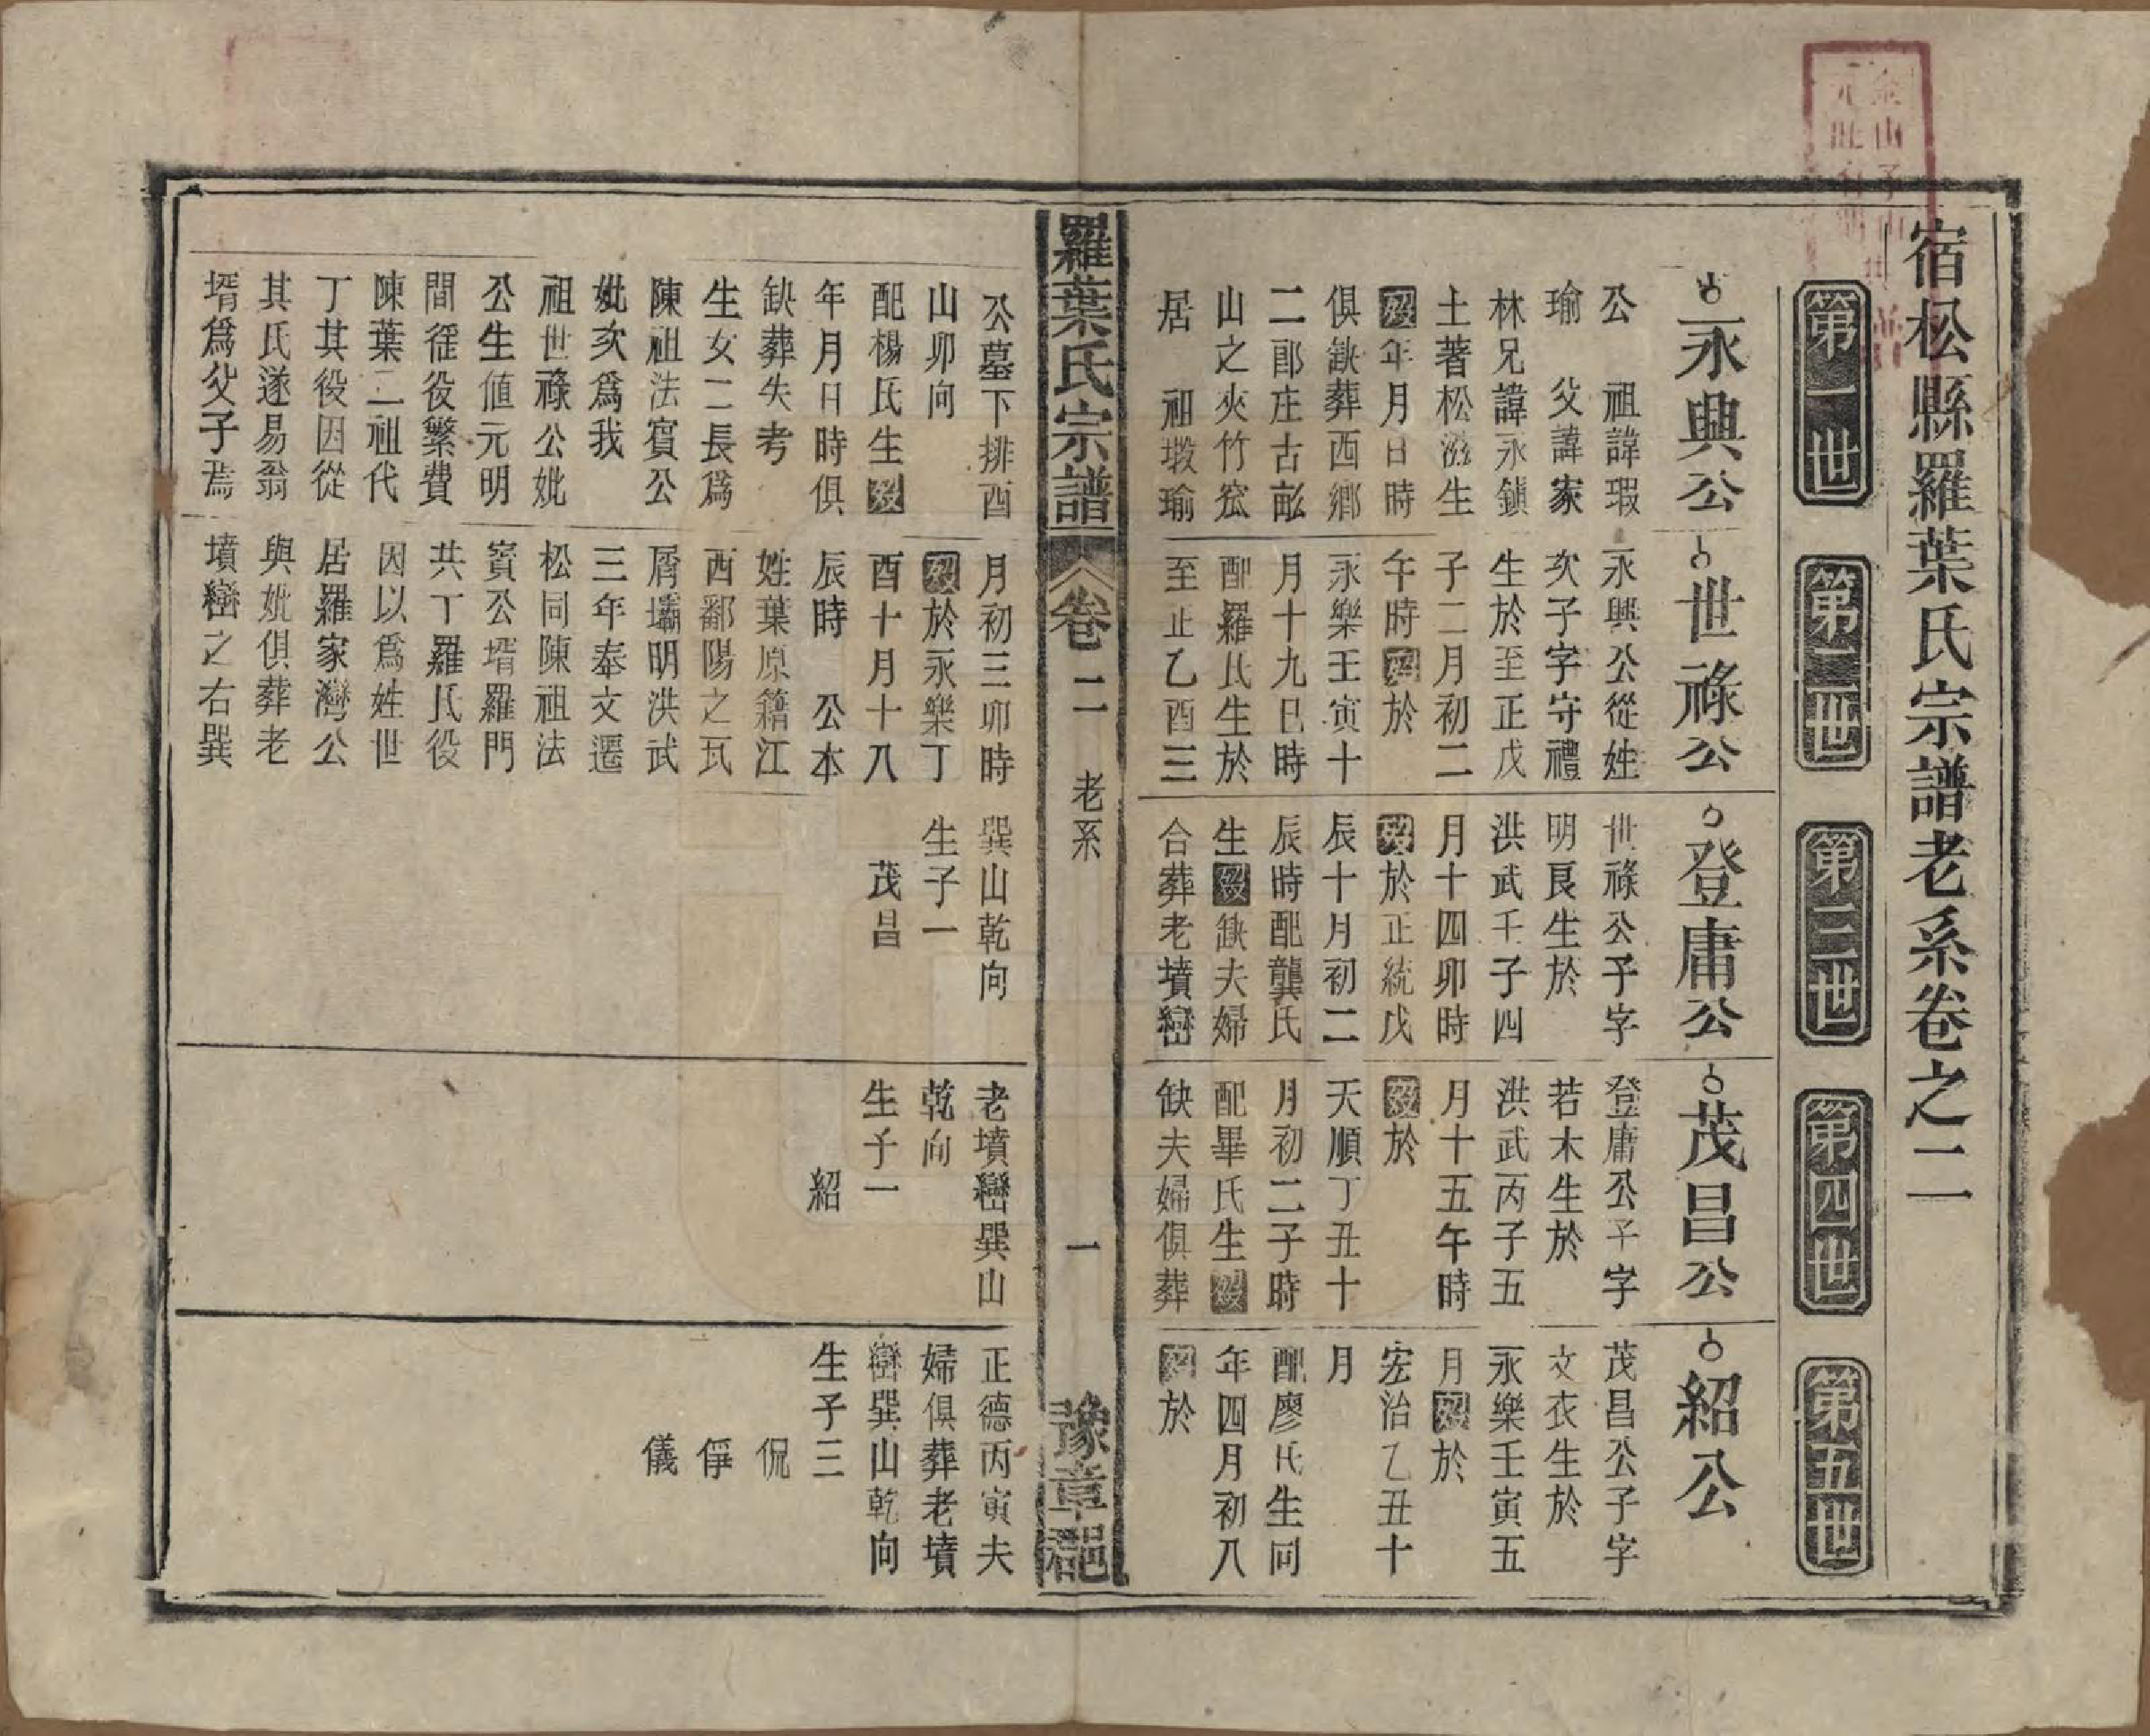 宿松縣羅葉氏宗譜老系卷之二
第一世
第二世
第三世
第四世
第五世
永興公
公 祖諱瑕
瑜 父諱家
林兄諱永鎮
土著松滋生
歿年月日時
俱缺葬西鄉
二郎庄古畝
山之夾竹窊
居 祖塅瑜
公墓下排酉
山卯向
配楊氏生歿
年月日時俱
缺葬失考
生女二長爲
陳祖法賓公
妣次爲我
祖世祿公妣
公生値元明
間徭役繁費
陳葉二祖代
丁其役因從
其氏遂易翁
壻爲父子焉
世祿公
永興公從姓
次子字守禮
生於至正戊
子二月初二
午時歿於
永樂壬寅十
月十九巳時
配羅氏生於
至正乙酉三
月初三卯時
歿於永樂丁
酉十月十八
辰時 公本
姓葉原籍江
西鄱陽之瓦
屑壩明洪武
三年奉文遷
松同陳祖法
賓公壻羅門
共丁羅氏役
因以爲姓世
居羅家灣公
與妣俱葬老
墳巒之右巽
巽山乾向
生子一
茂昌
登庸公
世祿公子字
明良生於
洪武壬子四
月十四卯時
歿於正統戊
辰十月初二
辰時配龔氏
生歿缺夫婦
合葬老墳巒
茂昌公
登庸公子字
若木生於
洪武丙子五
月十五午時
歿於
天順丁丑十
月初二子時
配畢氏生歿
缺夫婦俱葬
老墳巒巽山
乾向
生子一
紹
紹公
茂昌公子字
文衣生於
永樂壬寅五
月歿於
宏治乙丑十
月
配廖氏生同
年四月初八
歿於
正德丙寅夫
婦俱葬老墳
巒巽山乾向
生子三
侃
𠋧
儀
羅葉氏宗譜
卷二
老系
一
豫章郡